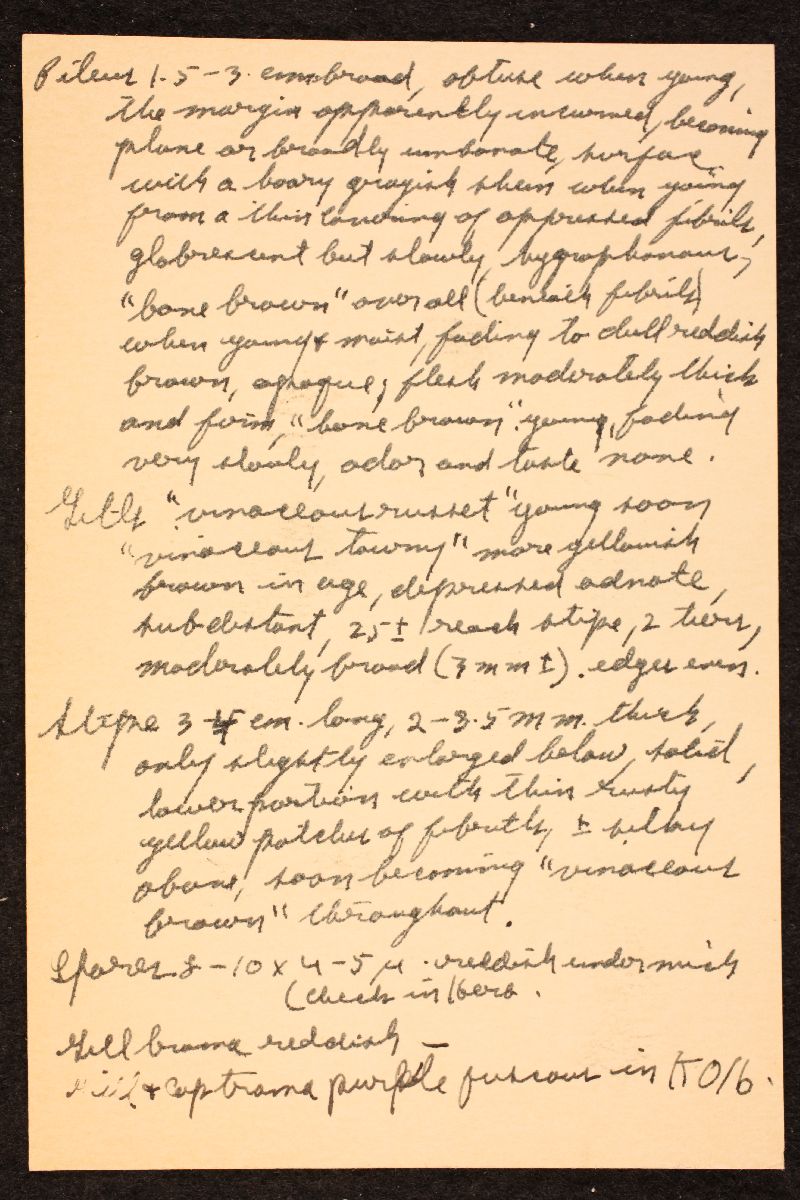 Pileus 1.5-3 cm broad, obtuse when young,
the margin apparently incurved, becoming
plane or broadly umbonate, surface
with a hoary grayish sheen when young
from a thin covering of appressed fibrils,
glabrescent but slowly, hygrophanous,
"bone brown" over all (beneath fibrils)
when young & moist, fading to dull reddish
brown, opaque; flesh moderately thick
and firm, "bone brown" young, fading
very slowly, odor and taste none.
Gills "vinaceous russet" young soon
"vinaceous tawny" more yellowish
brown in age, depressed adnate,
subdistant, 25± reach stipe, 2 tiers,
moderately broad (3 mm ±). edges even.
Stipe 3-4 cm. long, 2-3.5 mm. thick,
only slightly enlarged below, solid,
lower portion with thin rusty
yellow patches of fibrils, ± silky
above, soon becoming "vinaceous
brown" throughout.
Spores 8-10 x 4-5 µ. reddish under mich
(check in herb.
Gill trama reddish —
Gill & cap trama purple fuscous in KOH.